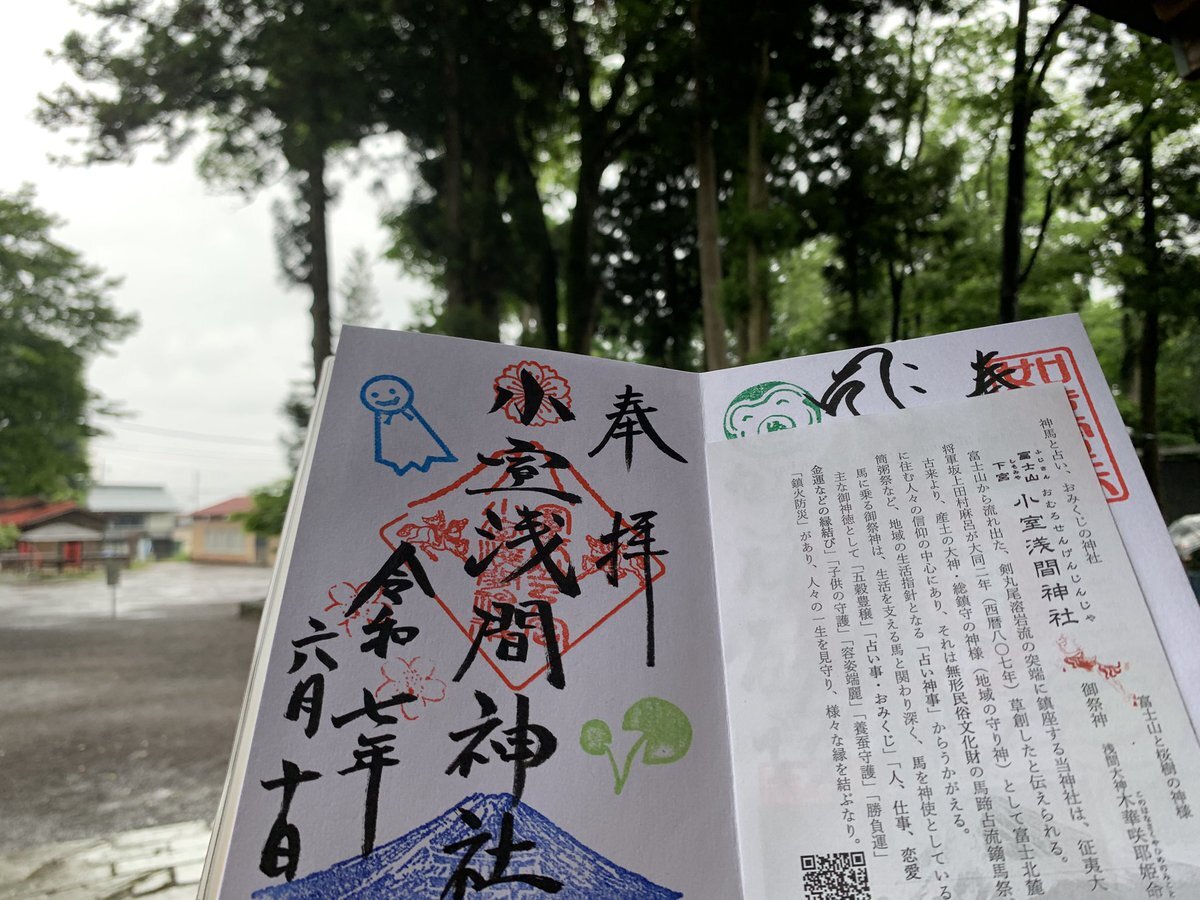 奉拝
小室浅間神社
令和七年
六月
十日
神馬と占い、おみくじの神社
富士山
ふじさん
下宮
しもみや
小室浅間神社
おむろせんげんじんじゃ
富士山と桜樹の神様
御祭神
浅間大神
木華咲耶姫命
このはなさくやひめのみこと
富士山から流れ出た、剣丸尾溶岩流の突端に鎮座する当神社は、征夷大
将軍坂上田村麻呂が大同二年（西暦八〇七年）草創したと伝えられる。
古来より、産土の大神・総鎮守の神様（地域の守り神）として富士北麓
に住む人々の信仰の中心にあり、それは無形民俗文化財の馬蹄占流鏑馬祭
筒粥祭など、地域の生活指針となる「占い神事」からうかがえる。
馬に乗る御祭神は、生活を支える馬と関わり深く、馬を神使としている
主な御神徳として「五穀豊穣」「占い事・おみくじ」「人、仕事、恋愛
金運などの縁結び」「子供の守護」「容姿端麗」「養蚕守護」「勝負運」
「鎮火防災」があり、人々の一生を見守り、様々な縁を結ぶなり。